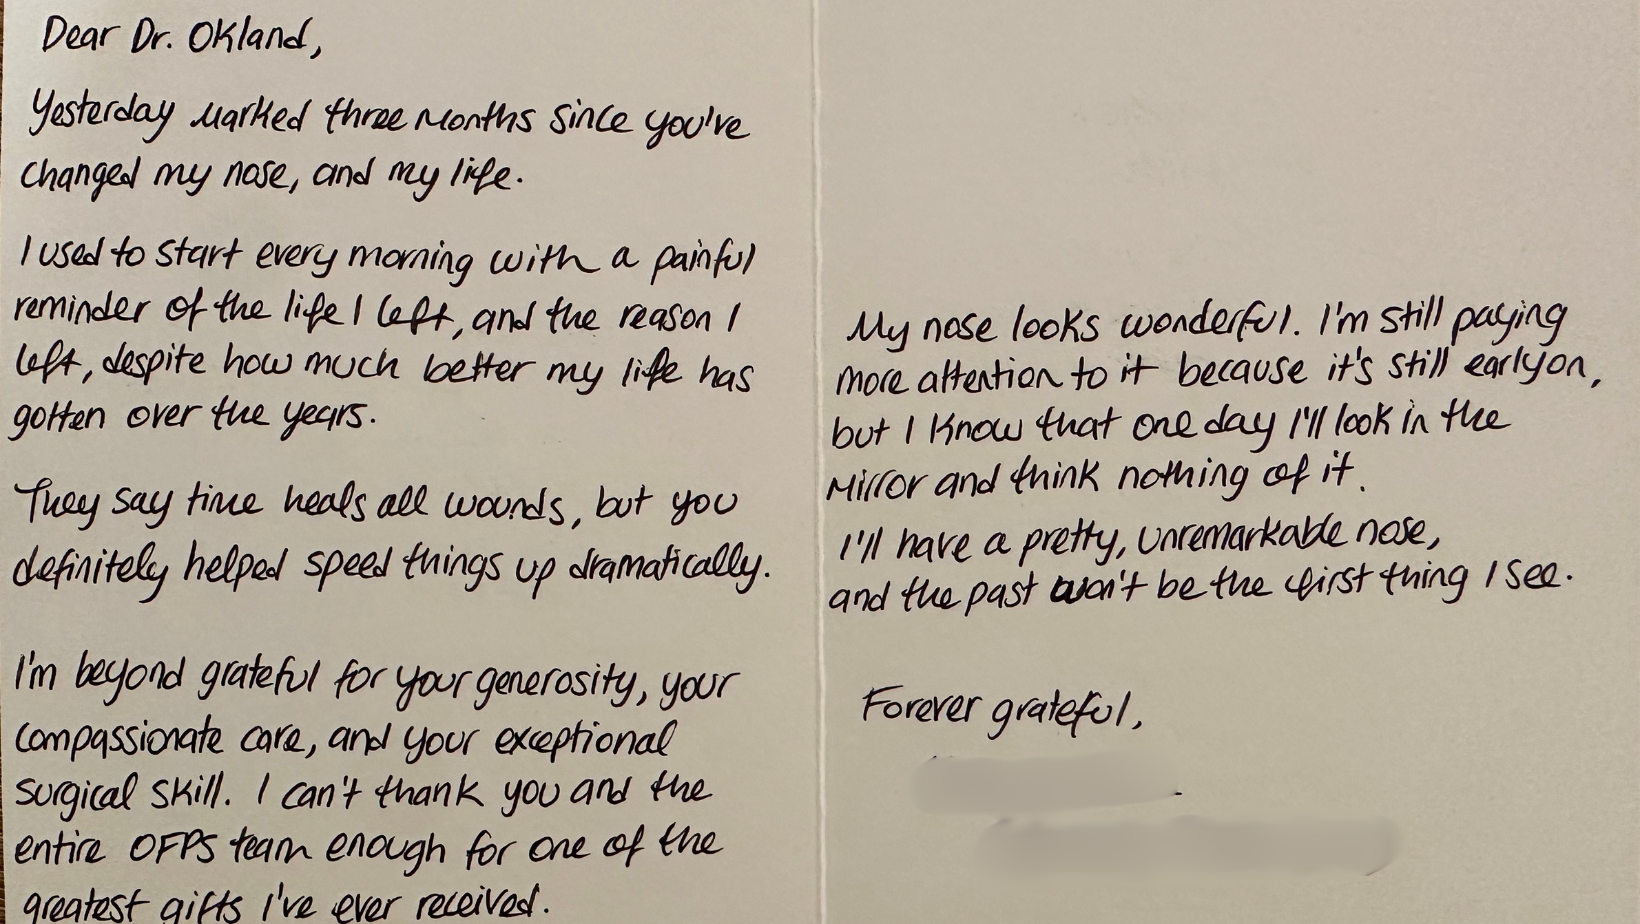 Dear Dr. Okland,
Yesterday marked three months since you've
changed my nose, and my life.
I used to start every morning with a painful
reminder of the life I left, and the reason I
left, despite how much better my life has
gotten over the years.
They say time heals all wounds, but you
definitely helped speed things up dramatically.
I'm beyond grateful for your generosity, your
compassionate care, and your exceptional
surgical skill. I can't thank you and the
entire OFPS team enough for one of the
greatest gifts I've ever received.
My nose looks wonderful. I'm still paying
more attention to it because it's still early on,
but I know that one day I'll look in the
mirror and think nothing of it.
I'll have a pretty, unremarkable nose,
and the past won't be the first thing I see.
Forever grateful,